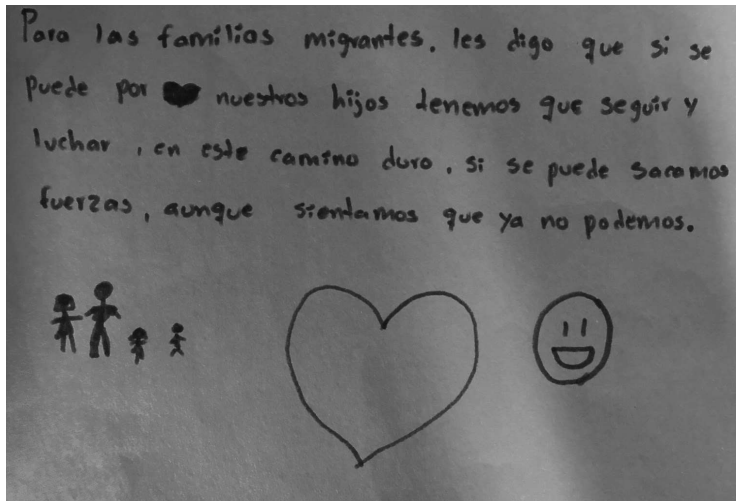 Para las familias migrantes, les digo que si se
puede por ♥ nuestros hijos tenemos que seguir y
luchar, en este camino duro, si se puede sacamos
fuerzas, aunque sientamos que ya no podemos.